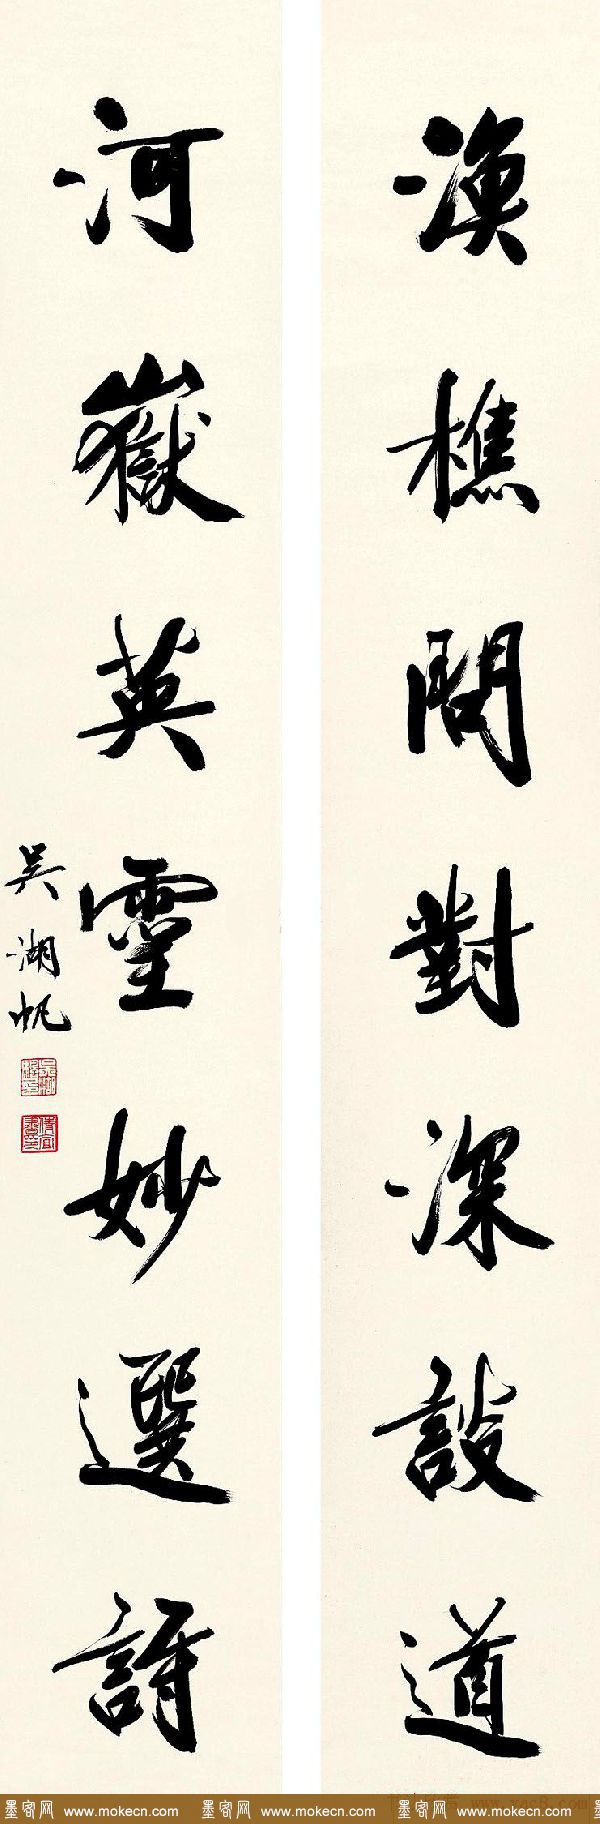 漁樵問對深談道
河嶽英靈妙選詩
吳湖帆
墨客网 www.mokecn.com 墨客网 www.mokecn.com 墨客网 www.mokecn.com